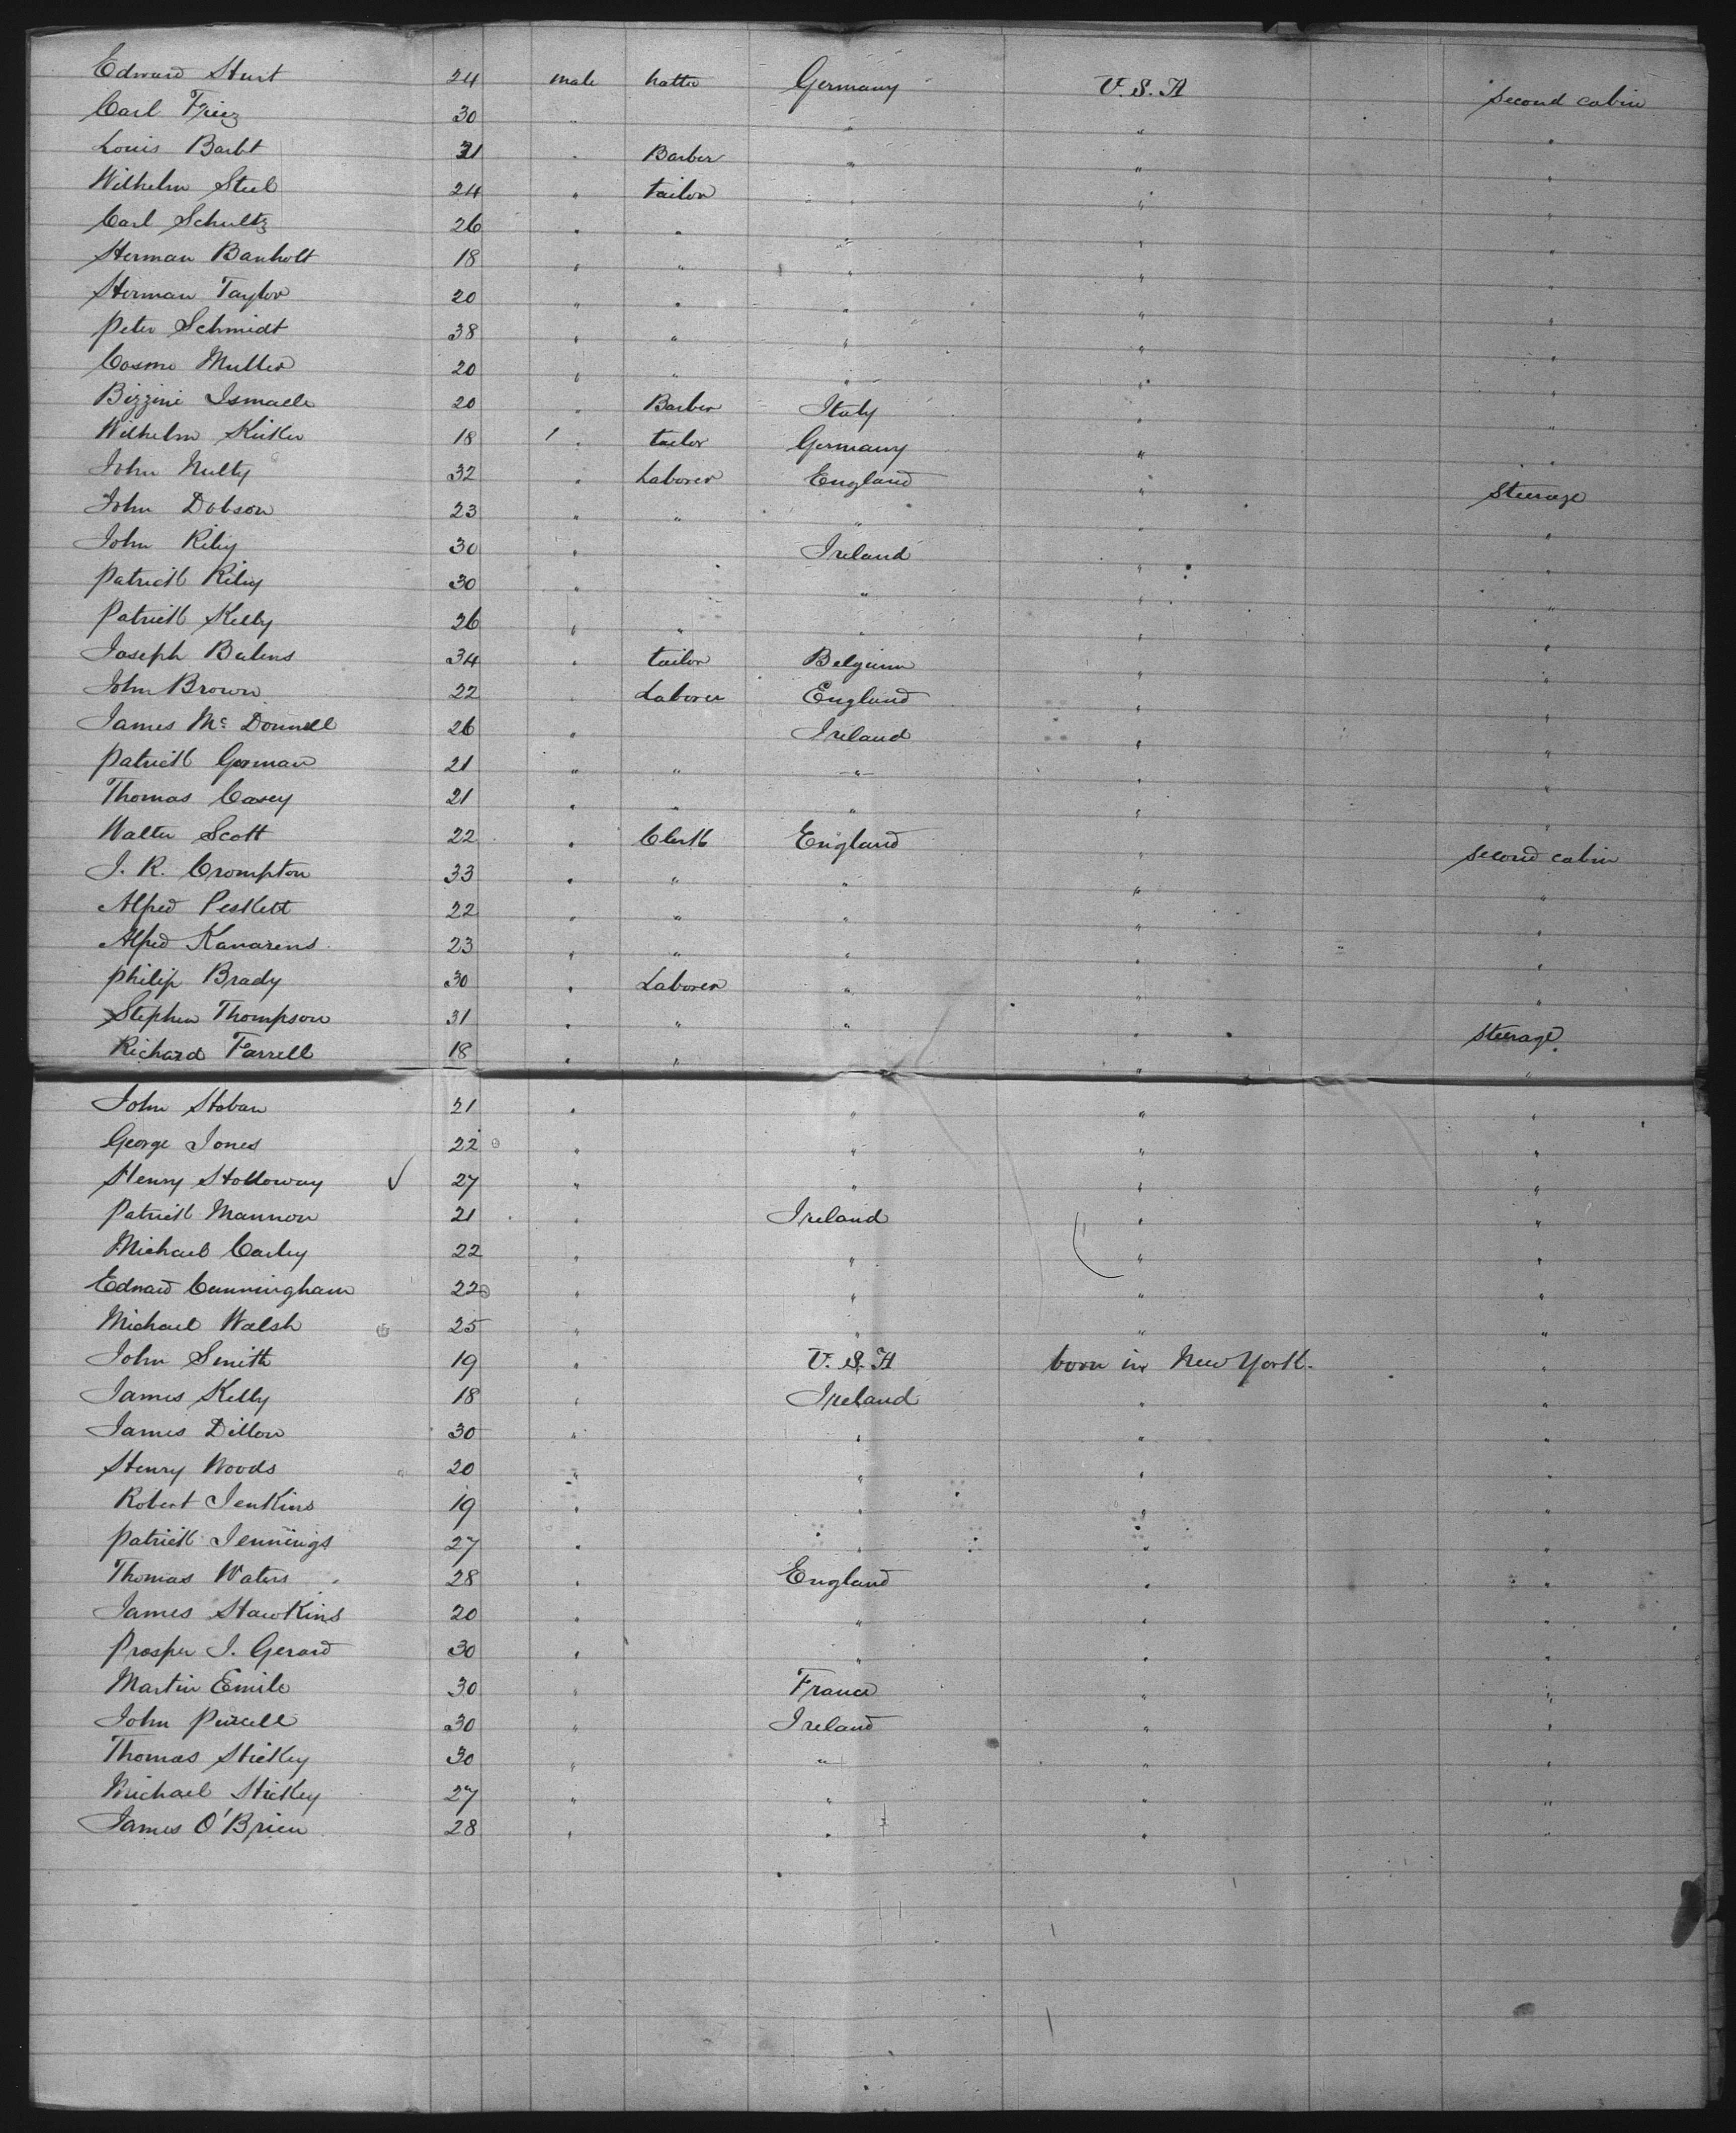 Edward Hurt 24 male hatter Germany U.S.A second cabin
Carl Friez 30 " " " "
Louis Barbt 31 " Barber " " "
Wilhelm Steel 24 " tailor " " "
Carl Schultz 26 " " " " "
Herman Banholt 18 " " " " "
Herman Taylor 20 " " " " "
Peter Schmidt 38 " " " " "
Cosmo Muller 20 " " " " "
Bizzini Ismaele 20 " Barber Italy " "
Wilhelm 18 " tailor Germany " "
John Nulty 32 " Laborer England " Steerage
John Dobson 23 " " " " "
John Riley 30 " Ireland " "
Patrick Riley 30 " " " "
Patrick Kelly 26 " " " " "
Joseph Balens 34 " tailor Belgium " "
John Brown 22 " Laborer England " "
James Mc Donnell 26 " Ireland " "
Patrick Gorman 21 " " " " "
Thomas Casey 21 " " " " "
Walter Scott 22 " Clerk England " second cabin
J. R. Crompton 33 " " " " "
Alfred Peskett 22 " " " " "
Alfred Kavarens 23 " " " " "
Philip Brady 30 " Laborer " " "
Stephen Thompson 31 " " " " Steerage
Richard Farrell 18 " " " "
John Hoban 21 " " " "
George Jones 22 " " " "
Henry Holloway ✓ 27 " " " "
Patrick Mannon 21 " Ireland " "
Michael Carley 22 " " " "
Edward Cunningham 22 " " " "
Michael Walsh 25 " " " "
John Smith 19 " U.S.A born in New York. "
James Kelly 18 " Ireland " "
James Dillon 30 " " " "
Henry Woods 20 " " " "
Robert Jenkins 19 " " " "
Patrick Jennings 27 " " " "
Thomas Waters 28 " England " "
James Hawkins 20 " " " "
Prosper J. Gerard 30 " " " "
Martin Emile 30 " France " "
John Purcell 30 " Ireland " "
Thomas Hickey 30 " " " "
Michael Hickey 27 " " " "
James O'Brien 28 " " " "